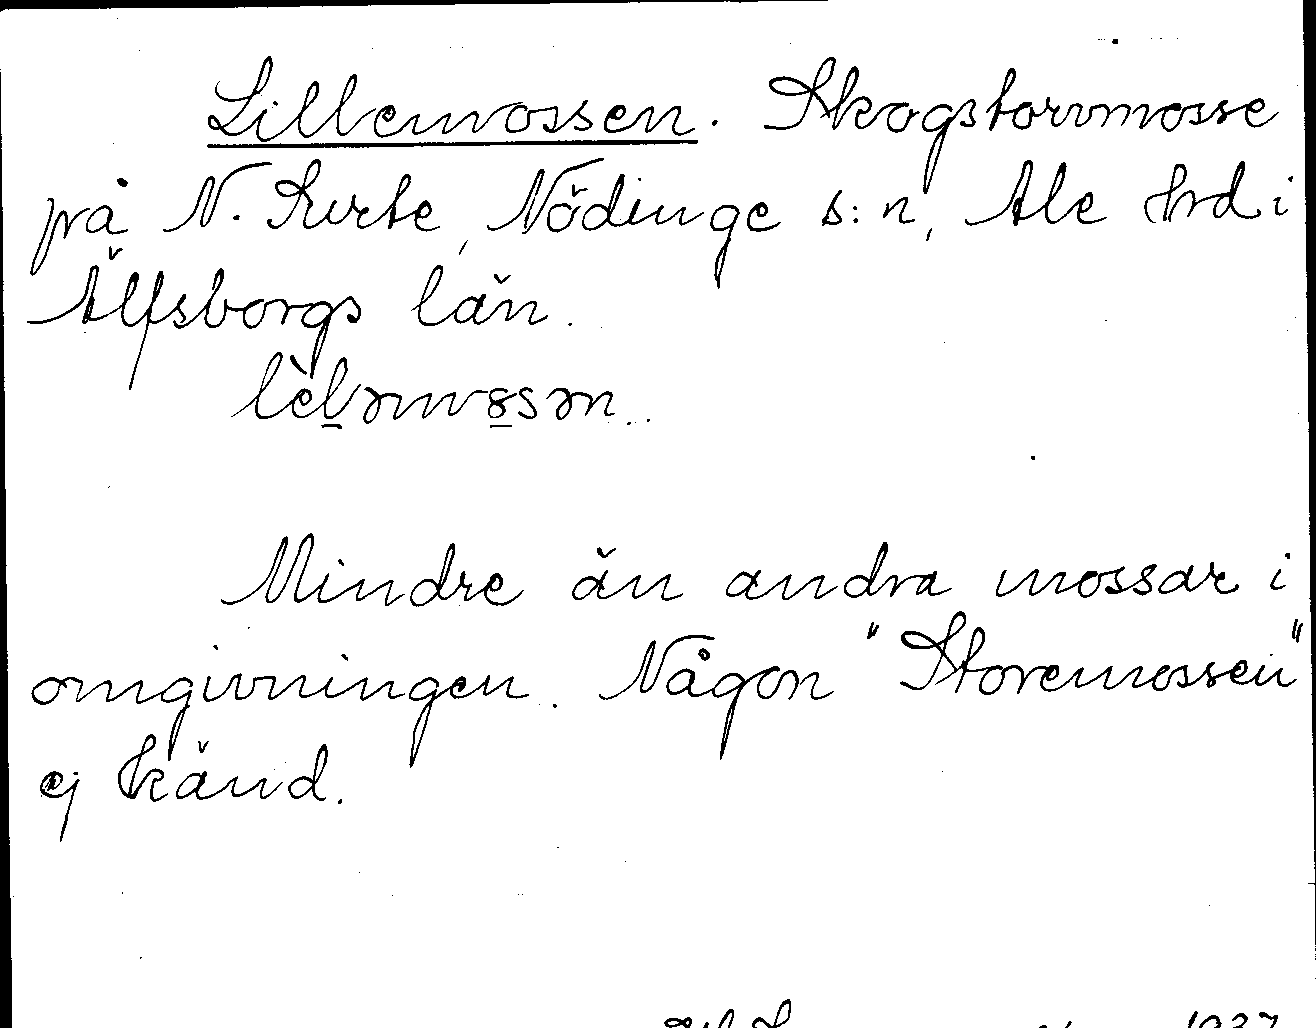 Lillemossen. Skogstorvmosse
på N. Surte, Nödinge s:n, Ale hrd i
Älfsborgs län.
Mindre än andra mossar i
omgivningen. Någon "Storemossen"
ej känd.
1937